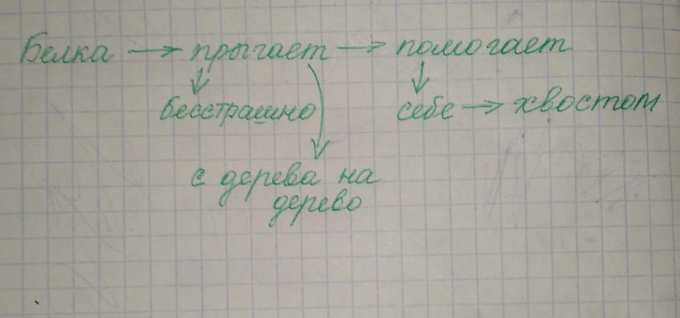 Белка → прыгает → помогает
бесстрашно себе → хвостом
с дерева на
дерево